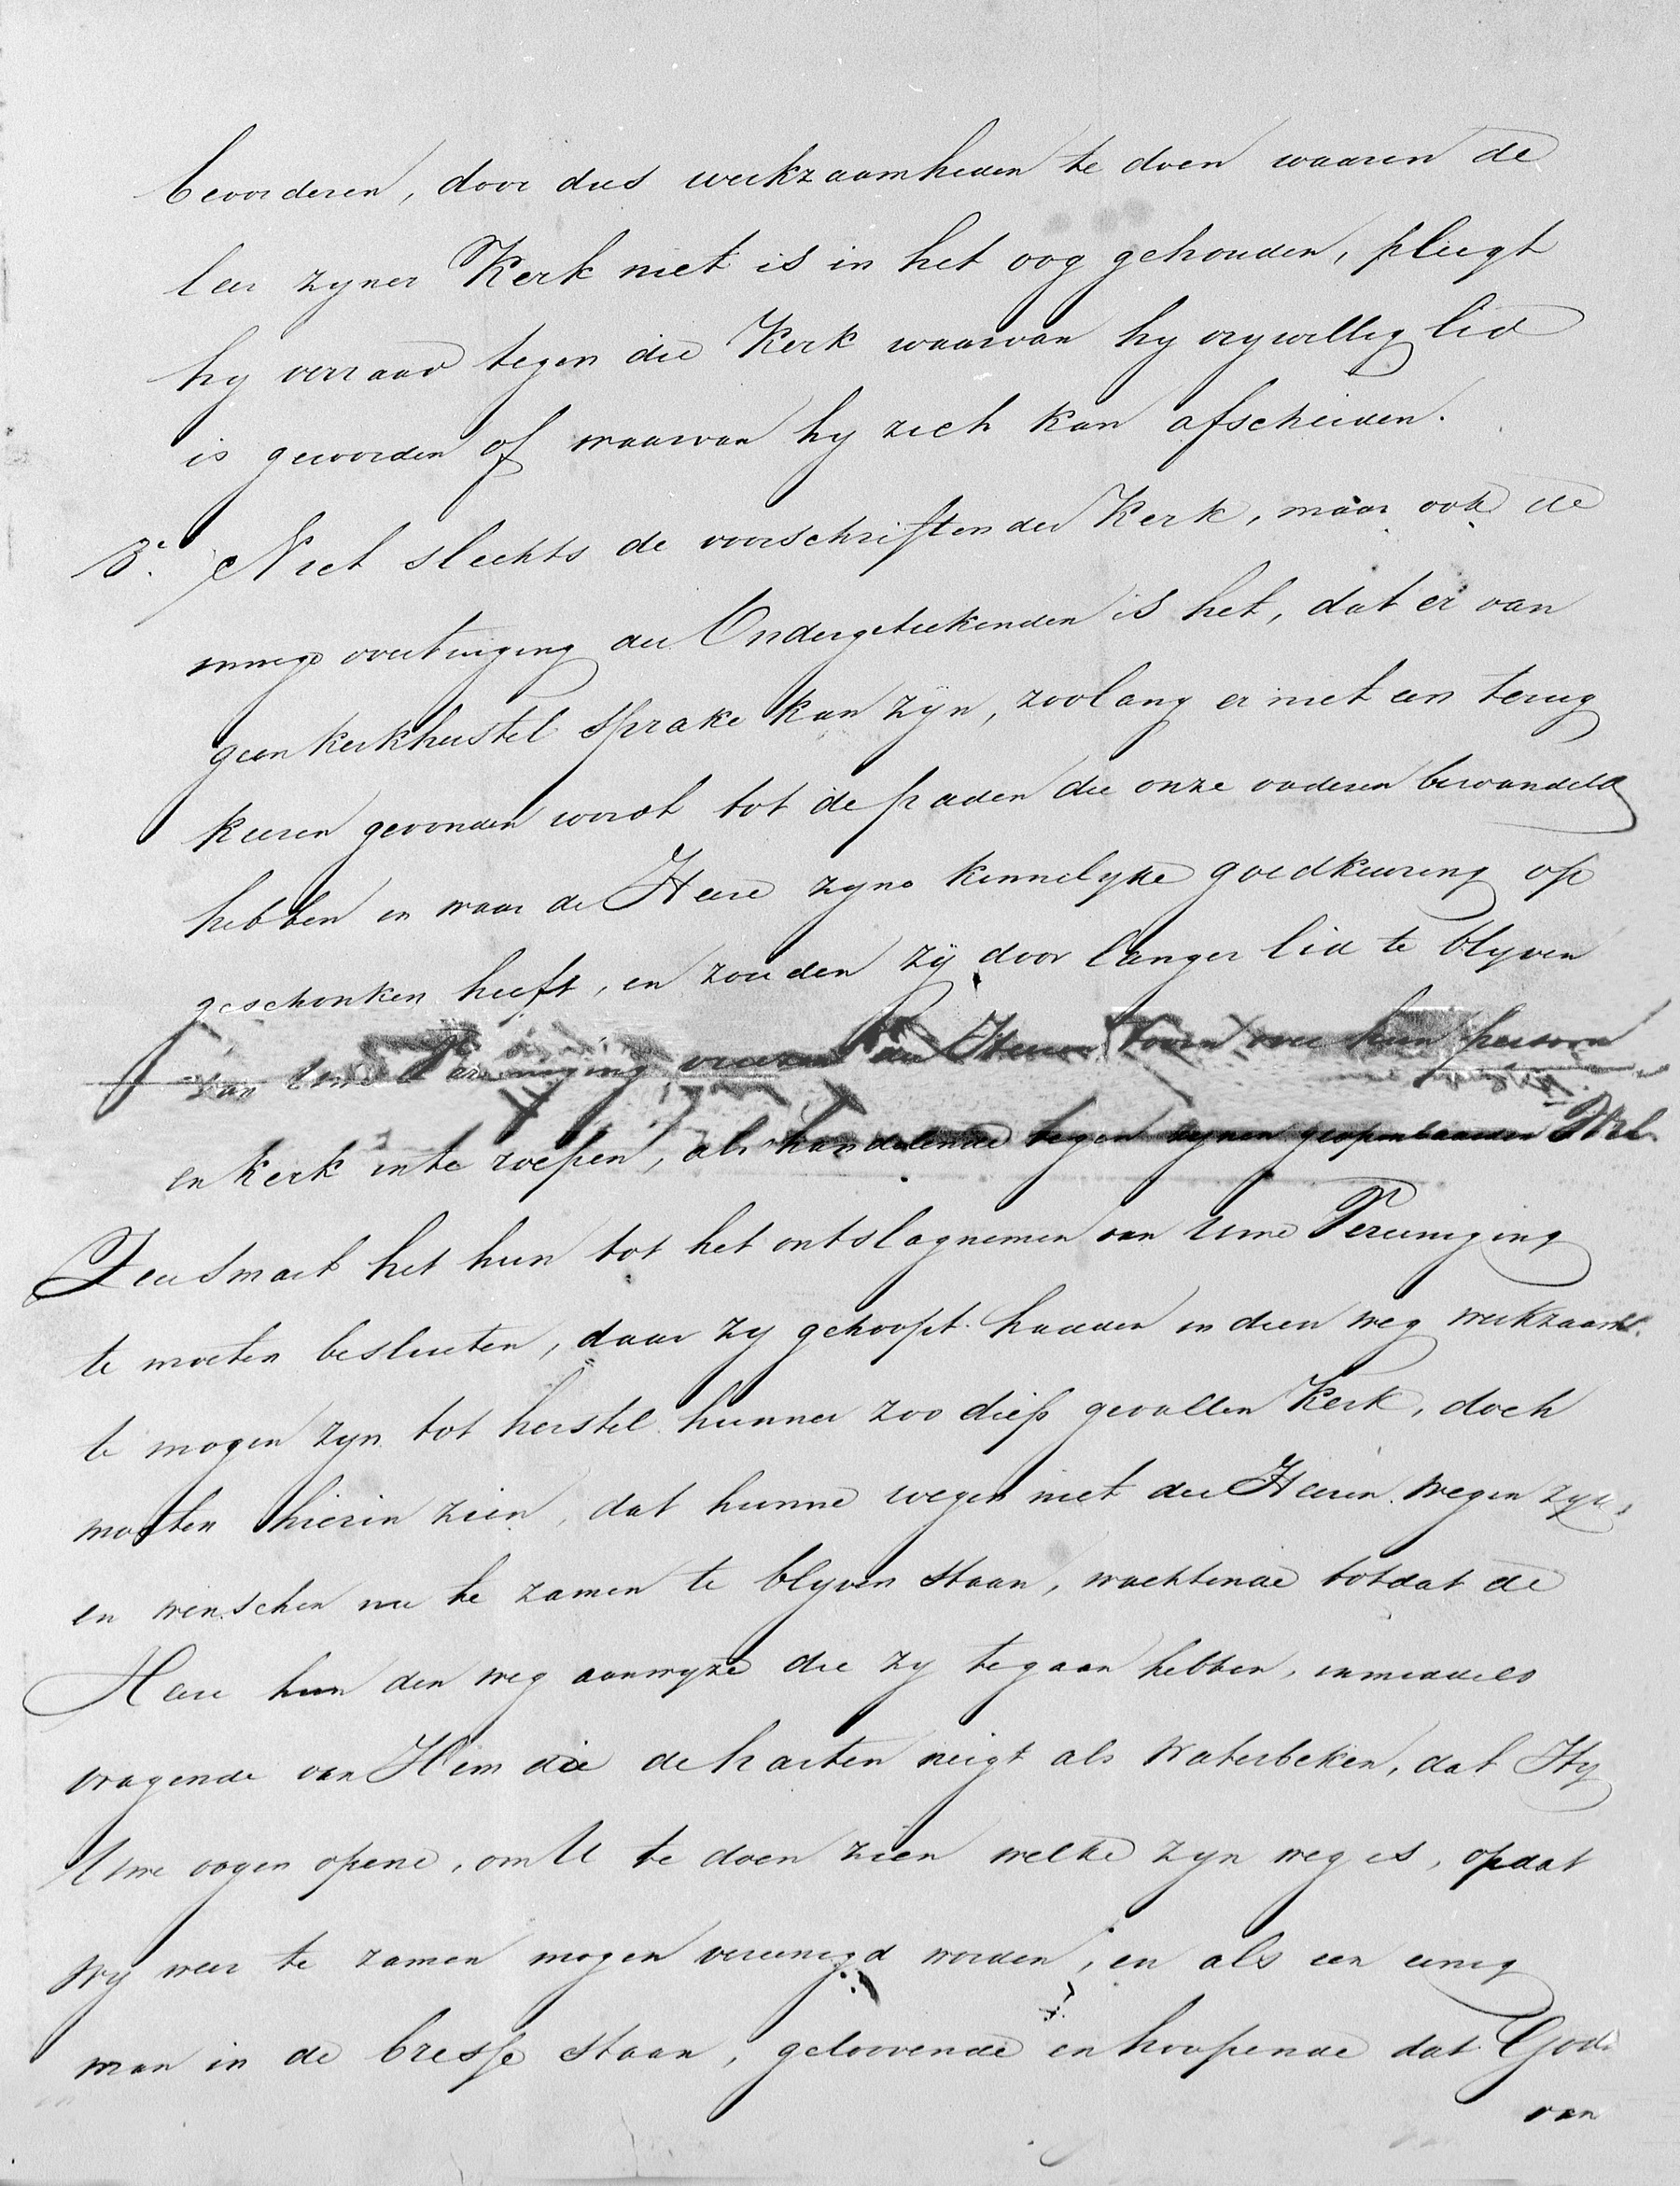 bevorderen, door dus werkzaamheden te doen waaren de
leer zyner Kerk niet is in het oog gehouden, pleegt
hy verraad tegen die Kerk waarvan hy vrywillig lid
is geworden of waarvan hy zich kan afscheiden.
3e. Niet slechts de voorschriften der Kerk, maar ook de
innige overtuiging der Ondergeteekenden is het, dat er van
geen kerkherstel sprake kan zyn, zoolang er niet een terug
keeren gevonden wordt tot de paden die onze vaderen bewandeld
hebben en waar de Heere zyne kennelyke goedkeuring op
geschonken heeft, en zouden zy door langer lid te blyven
van Uwe Vereeniging vreezen den Heeren toorn over hun persoon
en kerk in te roepen, als handelende tegen zynen geopenbaarden Wil.
Zeer smart het hun tot het ontslagnemen van Uwe Vereeniging
te moeten besluiten, daar zy gehoopt hadden in dien weg werkzaam
te mogen zyn tot herstel hunner zoo diep gevallen Kerk, doch
moeten hierin zien, dat hunne wegen niet des Heeren wegen zyn,
en wenschen nu te zamen te blyven staan, wachtende totdat de
Heere hun den weg aanwyze die zy te gaan hebben, inmiddels
vragende van Hem die de harten neigt als Waterbeken, dat Hy
Uwe oogen opene, om U te doen zien welke zyn weg is, opdat
wy weer te zamen mogen vereenigd worden, en als een eenig
man in de bresse staan, geloovende en hoopende dat God
van